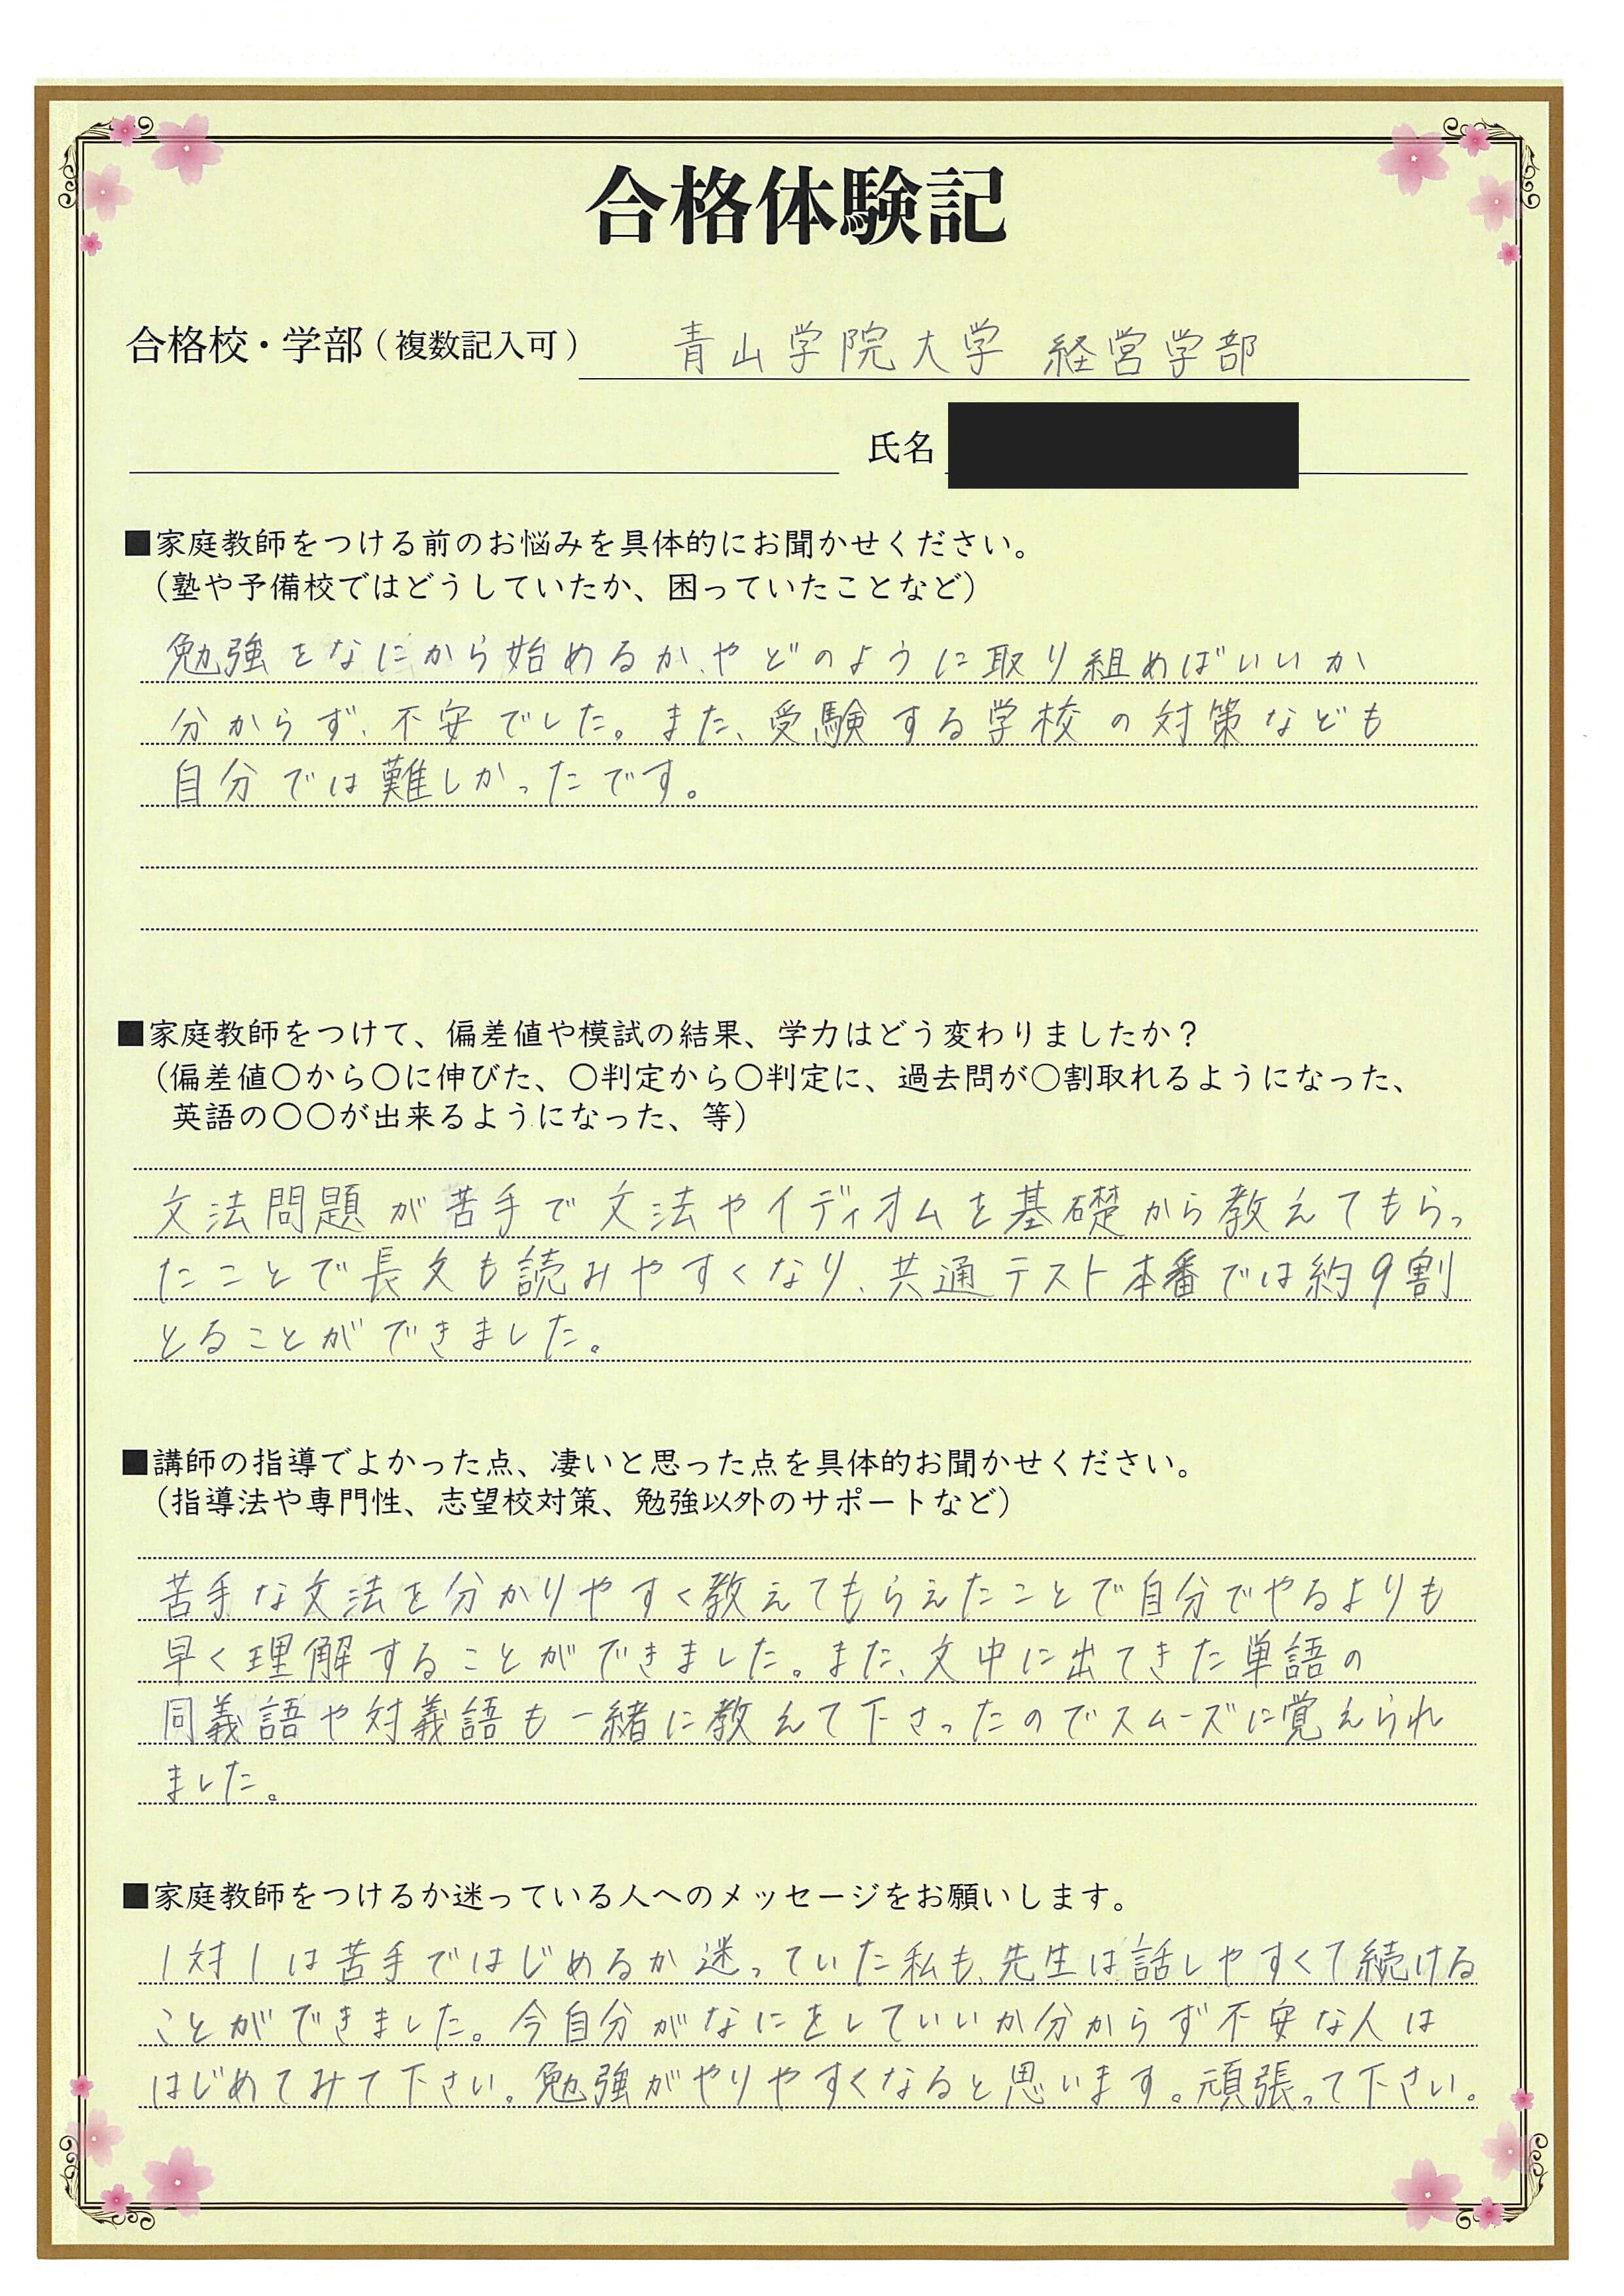 合格体験記
合格校・学部（複数記入可） 青山学院大学 経営学部
氏名
■家庭教師をつける前のお悩みを具体的にお聞かせください。
（塾や予備校ではどうしていたか、困っていたことなど）
勉強をなにから始めるか、やどのように取り組めばいいか
分からず、不安でした。また、受験する学校の対策なども
自分では難しかったです。
■家庭教師をつけて、偏差値や模試の結果、学力はどう変わりましたか？
（偏差値〇から〇に伸びた、〇判定から〇判定に、過去問が〇割取れるようになった、
英語の〇〇が出来るようになった、等）
文法問題が苦手で文法やイディオムを基礎から教えてもらっ
たことで長文も読みやすくなり、共通テスト本番では約9割
とることができました。
■講師の指導でよかった点、凄いと思った点を具体的お聞かせください。
（指導法や専門性、志望校対策、勉強以外のサポートなど）
苦手な文法を分かりやすく教えてもらえたことで自分でやるよりも
早く理解することができました。また、文中に出てきた単語の
同義語や対義語も一緒に教えて下さったのでスムーズに覚えられ
ました。
■家庭教師をつけるか迷っている人へのメッセージをお願いします。
1対1は苦手ではじめるか迷っていた私も、先生は話しやすくて続ける
ことができました。今自分がなにをしていいか分からず不安な人は
はじめてみて下さい。勉強がやりやすくなると思います。頑張って下さい。